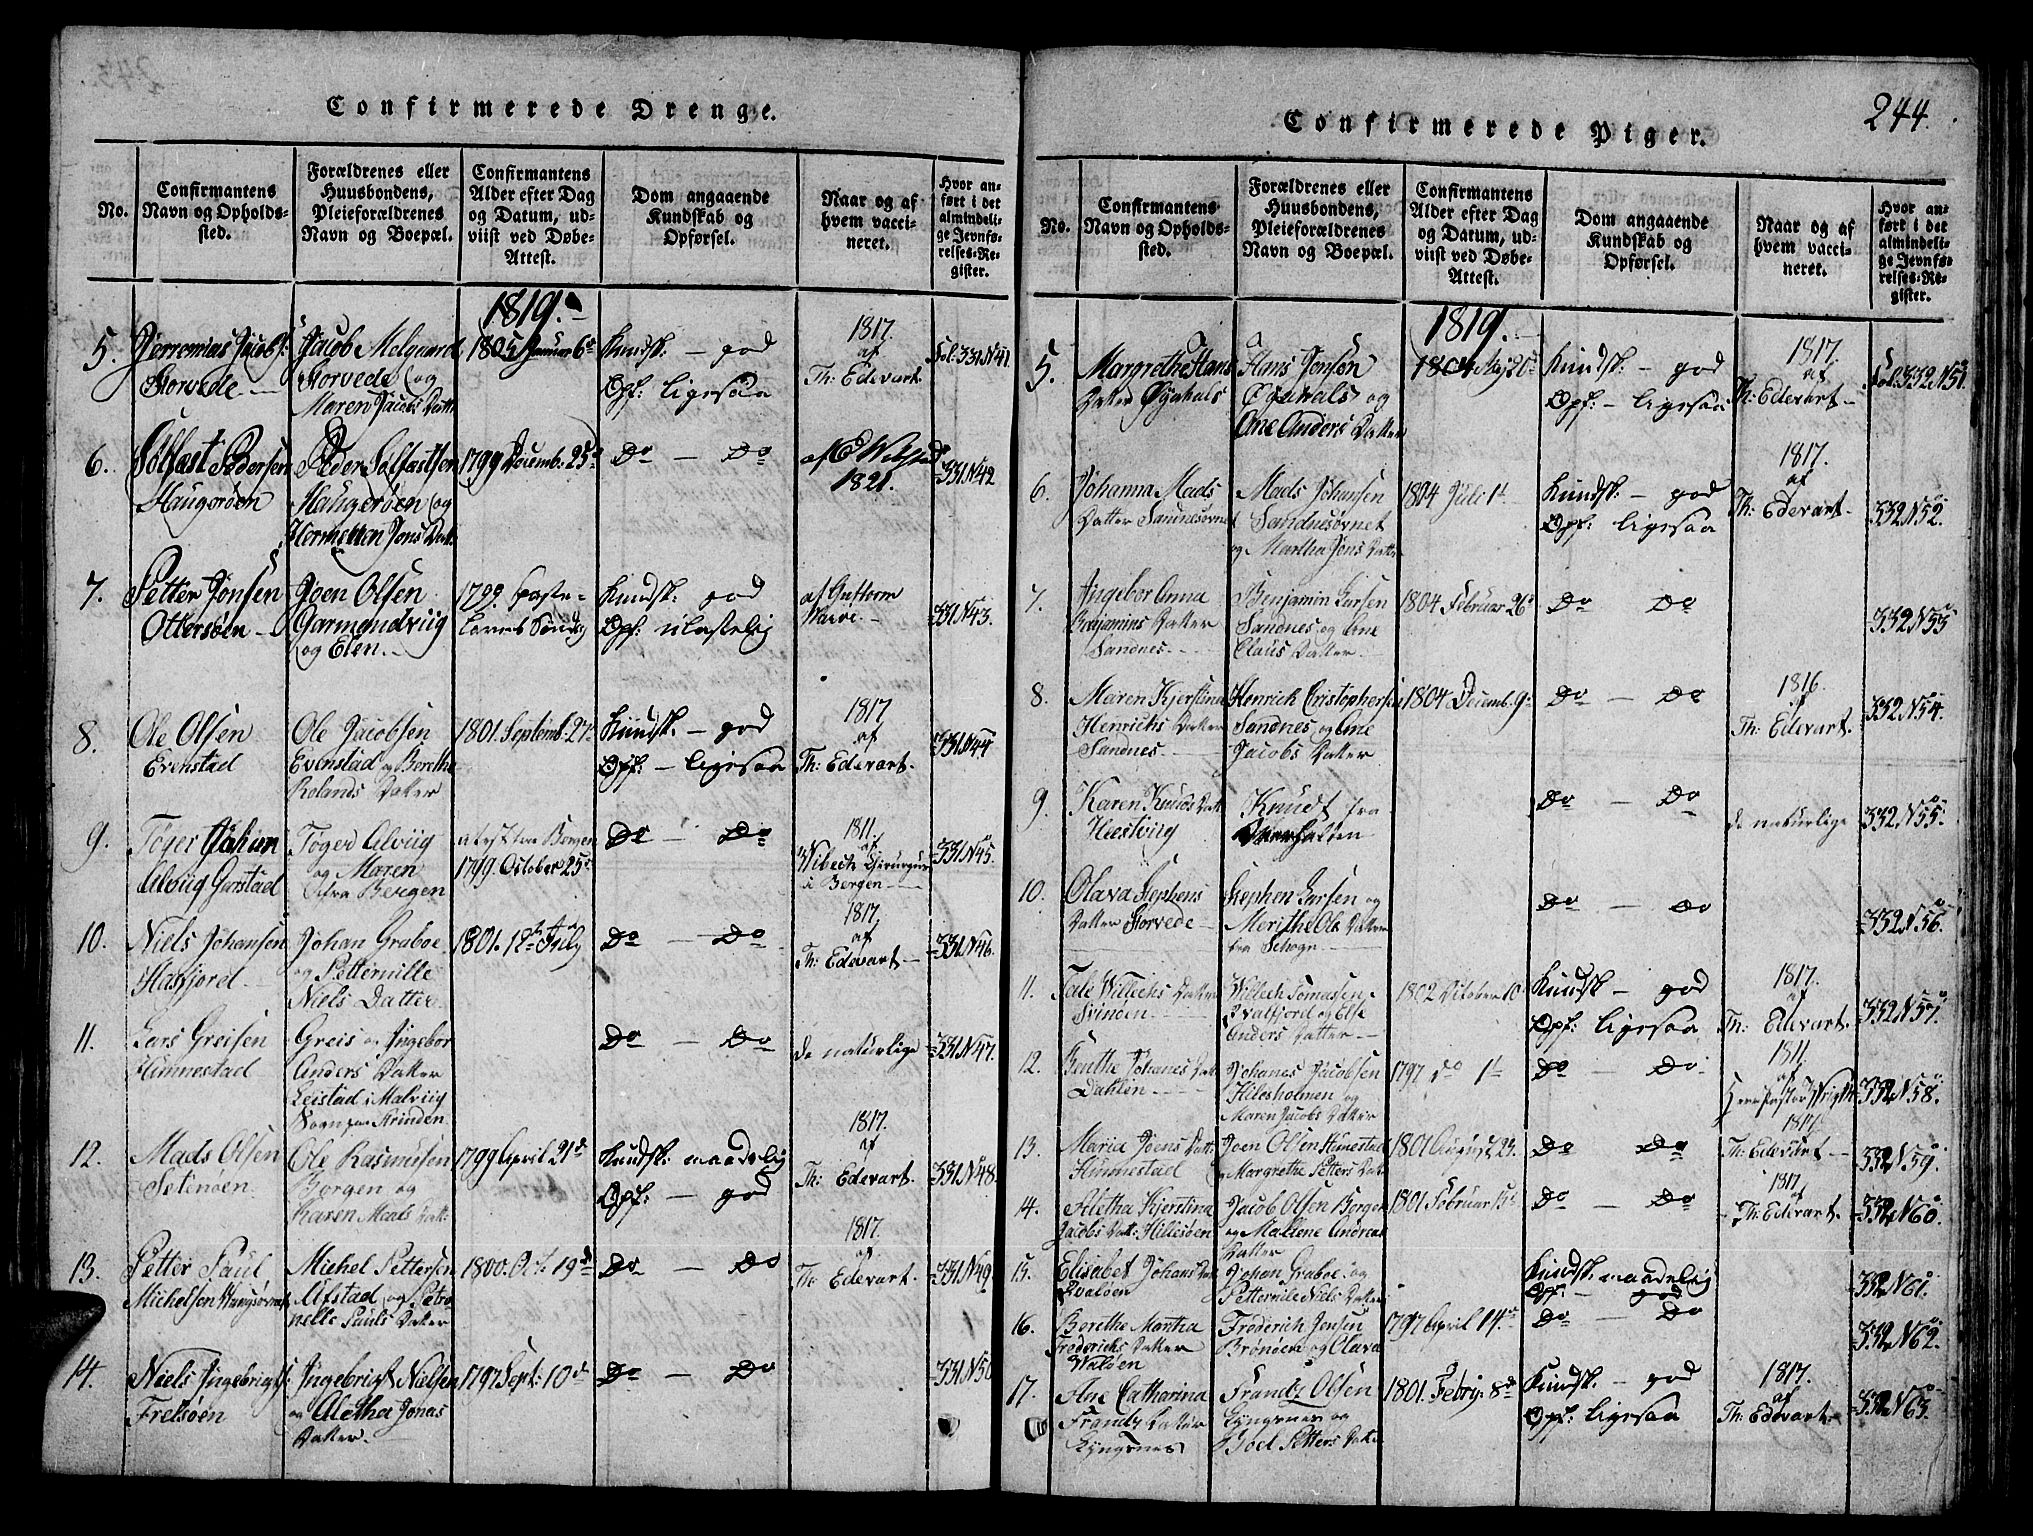 244.
Confirmerede Drenge.
No.
Confirmantens Navn og Opholdssted.
Forældrenes eller Huusbondens, Pleieforældrenes Navn og Boepæl.
Confirmantens Alder efter Dag og Datum, udviist ved Døbe-Attest.
Dom angaaende Kundskab og Opførsel.
Naar og af hvem vaccineret.
Hvor anført i det almindelige Jevnførelses-Register.
1819.
5. Jerremias Jacobs: Jacob Melgaard 1805 Januar 6te Kundsk: – god 1817. Fol: 331 N 41.
Storvede Storvede og Opf: ligesaa af
Maren Jacobs Datt: Th: Edevart.
6. Solfast Pedersen Peder Solfastsen 1799 Decemb: 25 Do – Do 331 N 42
Haugerøen Haugerøen og 1821.
Jons Datt:
7. Petter Jonsen Joen Olsen 1799 Faste- Kundsk: god af Guttorm 331 N 43.
Ottersøen Garmandviig Opf: ulastelig
og Elen.
8. Ole Olsen Ole Jacobsen 1801 Septemb: 27 Kundsk: – god 1817 331 N 44
Evenstad Evenstad og Berethe Opf: – ligesaa af
Rolands Datter Th: Edevart.
9. Tøger Johan Tøger Alviig Bergen Do – Do 1811. 331 N 45.
Alviig Garstad og Maren 1799 October 25 af
fra Bergen Wibech Chirurgus i Bergen
10. Niels Johansen Johan Graboe 1801. 12te July Do – Do 1817. 331 N 46.
Hasfjord og Petternille af
Niels Datter Th: Edevart
11. Lars Greisen Greis og Ingebor Do – Do de naturlige 331 N 47.
Finnestad Anders Datter
Leistad i Malviig
Sogn paa Strinden
12. Mads Olsen Ole Rasmusen 1799 April 21de Kundsk: maadelig 1817. 331 N 48.
Selenøen Borgen og Opf: – god af
Karen Mads Datt: Th: Edevart.
13. Petter Paul Michel Pettersen 1800. Oct: 19de Do – Do 1817. 331 N 49.
Michelsen Ufstad og Petro af
nelle Pauls Datter Th: Edevart.
14. Niels Ingebrigts: Ingebrigt Nielsen 1797 Sept: 10de Do – Do 331 N 50
Frelsøen og Aletha Jonas
Datter.
Confirmerede Piger.
No.
Confirmantens Navn og Opholdssted.
Forældrenes eller Huusbondens, Pleieforældrenes Navn og Boepæl.
Confirmantens Alder efter Dag og Datum, udviist ved Døbe-Attest.
Dom angaaende Kundskab og Opførsel.
Naar og af hvem vaccineret.
Hvor anført i det almindelige Jevnførelses-Register.
1819.
5. Margrethe Hans Hans Jonsen 1804 Maj 20 Kundsk: – god 1817. Fol: 332 N 51.
Datter og Opf: – ligesaa af
Ane Anders Datter Th: Edevart
6. Johanna Mads Mads Johansen 1804 Juli 1t Kundsk: – god 1817. 332 N 52.
Datter Sandnesørnet Sandnesørnet Opf: ligesaa af
og Martha Jons Datter Th: Edevart.
7. Ingebor Anna Benjamin Larsen 1804 Februar 26 Do Do 332 N 53
Benjamins Datter Sandnes og Ane
Sandnes Claus Datter
8. Maren Kjerstina Henrich Cristophersen 1804 Decemb. 9 Do – Do 1816. 332 N 54.
Henrichs Datter Sandnes og Ane af
Sandnes Jacobs Datter Th: Edevart.
9. Karen Knuds Datt: Knudt fra Do – Do de naturlige 332 N 55.
Hestviig Overhalden
10. Olava Stephens Stephen Larsen og Do – Do 332 N 56.
Datter Storvede Merithe Ols Datter
11. Tale Willechs Datter Willech Tomassen 1802 October 10 Kundsk – god 1817. 332 N 57.
Svinøen Qvalfjord og Else Opf: ligesaa af
Anders Datter Th: Edevart.
12. Johanes Datt: Johanes Jacobsen 1797 Do 1t Do – Do 1811. 332 N 58.
Dahlen Hilesholmen og af
Maren Jacobs Datter Herr Pastor
13. Maria Joens Datt: Joen Olsen Finnestad 1801 August 23. Do – Do 1817. 332 N 59.
Finnestad Margrethe Petters Datter Th: Edevart
14. Aletha Kjerstina Jacob Olsen Borgen 1801 Februar 15 Do – Do 1817. 332 N 60.
Jacobs Datt: Hillesøen og Malene Andreas Datter Th: Edevart.
15. Elisabet Johans Datt: Johan Graboe og Kundsk: maadelig 332 N 61.
Qvaløen Petternille Niels Datter Opf: – god
16. Berethe Martha Frederich Jensen 1797 April 14 Do – Do 332 N 62.
Frederichs Datter Brønøen og Olava
Waløen
17. Ane Catharina Frandz Olsen 1801. Febry: 8de Kundsk: – god 1817. 332 N 63.
Frandz Datter Lyngsnes og Opf: ligesaa af
Lyngsnes Boel Petters Datter Th: Edevart